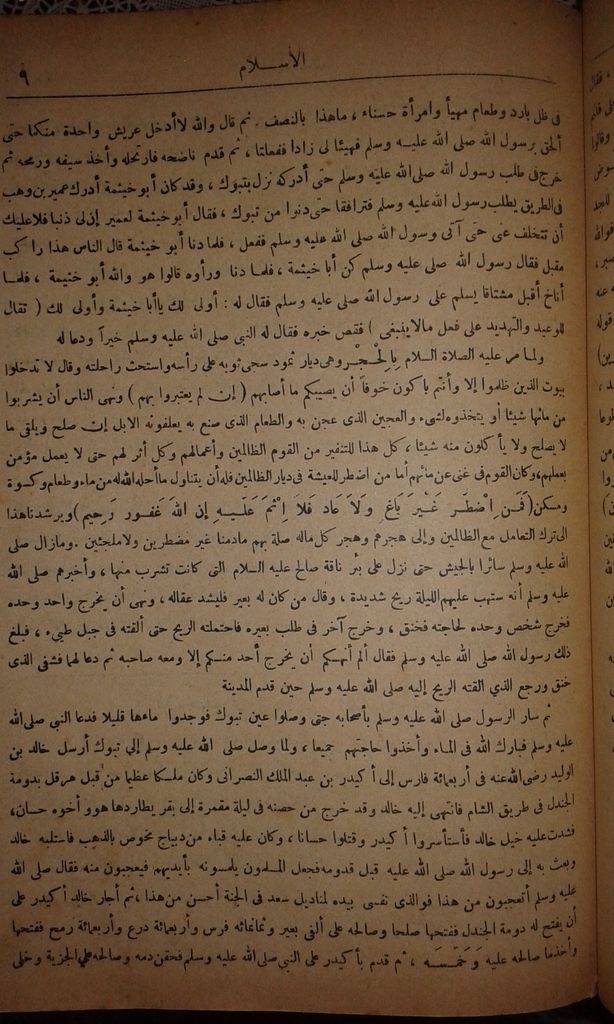 الأسلام
٩
فى ظل بارد وطعام مهيأ وامرأة حسناء ، ماهذا بالنصف . ثم قال والله لاأدخل عريش واحدة منكما حتى
ألحق برسول الله صلى الله عليه وسلم فهيئا لى زادا ففعلتا ، ثم قدم ناضحه فارتحله وأخذ سيفه ورمحه ثم
خرج فى طلب رسول الله صلى الله عليه وسلم حتى أدركه نزل بتبوك ، وقد كان أبو خيثمة أدرك عمير بن وهب
فى الطريق يطلب رسول الله عليه وسلم فترافقا حتى دنوا من تبوك ، فقال أبو خيثمة لعمير إن لى ذنبا فلا عليك
أن تتخلف عنى حتى آتى رسول الله صلى الله عليه وسلم ففعل ، فلما دنا أبو خيثمة قال الناس هذا راكب
مقبل فقال رسول الله صلى عليه وسلم كن أبا خيثمة ، فلما دنا ورأوه قالوا هو والله أبو خثيمة ، فلما
أناخ أقبل مشتاقا يسلم على رسول الله صلى عليه وسلم فقال له : أولى لك ياأبا خيثمة وأولى لك ( تقال
للوعيد والتهديد على فعل مالاينبغى ) فقص خبره فقال له النبى صلى الله عليه وسلم خيرآ ودعا له
ولما مر عليه الصلاة السلام بِالْحِجْرِ وهى ديار ثمود سجى ثوبه على رأسه واستحث راحلته وقال لا تدخلوا
بيوت الذين ظلموا إلا وأنتم باكون خوفا أن يصيبكم ما أصابهم ( إن لم يعتبروا بهم ) ونهى الناس أن يشربوا
من مائها شيئا أو يتخذوه لشىء والعجين الذى عجن به والطعام الذى صنع به يعلفونه الابل إن صلح ويلقى ما
لا يصلح ولا يأكلون منه شيئا ، كل هذا للتنفير من القوم الظالمين وأعمالهم وكل أثر لهم حتى لا يعمل مؤمن
بعملهم ، وكان القوم فى غنى عن مائهم أما من اضطر للعيشة فى ديار الظالمين فله أن يتناول ماأحله الله له من ماء وطعام وكسوة
ومسكن ( فَمَنِ اضْطُرَّ غَيْرَ بَاغٍ وَلَا عَادٍ فَلَا إِثْمَ عَلَيْهِ إن اللهَ غَفُور رَحِيم ) ويرشدنا هذا
الى ترك التعامل مع الظالمين وإلى هجرهم وهجر كل ماله صلة بهم مادمنا غير مضطرين ولاملجئين . ومازال صلى
الله عليه وسلم سائرا بالجيش حتى نزل على بئر ناقة صالح عليه السلام التى كانت تشرب منها ، وأخبرهم صلى الله
عليه وسلم أنه ستهب عليهم الليلة ريح شديدة ، وقال من كان له بعير فليشد عقاله ، ونهى أن يخرج واحد وحده
فخرج شخص وحده لحاجته فخنق ، وخرج آخر فى طلب بعيره فاحتملته الريح حتى ألقته فى جبل طيىء ، فبلغ
ذلك رسول الله صلى الله عليه وسلم فقال ألم أنهكم أن يخرج أحد منكم إلا ومعه صاحبه ثم دعا لهما فشفى الذى
خنق ورجع الذي القته الريح إليه صلى الله عليه وسلم حين قدم المدينة
ثم سار الرسول صلى الله عليه وسلم بأصحابه حتى وصلوا عين تبوك فوجدوا ماءها قليلا فدعا النبى صلى الله
عليه وسلم فبارك الله فى الماء وأخذوا حاجتهم جميعا ، ولما وصل صلى الله عليه وسلم إلى تبوك أرسل خالد بن
الوليد رضى الله عنه فى أربعمائة فارس إلى أكيدر بن عبد الملك النصرانى وكان ملكا عظيما من قبل هرقل بدومة
الجندل فى طريق الشام فانتهى إليه خالد وقد خرج من حصنه فى ليلة مقمرة إلى بقر يطاردها هوو أخوه حسان ،
فشدت عليه خيل خالد فأستأسروا أكيدر وقتلوا حسانا ، وكان عليه قباء من ديباج مخوص بالذهب فاستلبه خالد
وبعث به إلى رسول الله صلى الله عليه قبل قدومه فجعل المسلمون يلمسونه بأيديهم فيعجبون منه فقال صلى الله
عليه وسلم أتعجبون من هذا فوالذى نفسى بيده لمناديل سعد فى الجنة أحسن من هذا ، ثم أجار خالد أكيدر على
أن يفتح له دومة الجندل ففتحها صلحا وصالحه على ألفى بعير وثمانمائه فرس وأربعمائة درع وأربعمائة رمح ففتحها
وأخذما صالحه عليه وَخَمَّسَه ، ثم قدم بأكيدر على النبى صلى الله عليه وسلم فحقن دمه وصالحه على الجزية وخلى